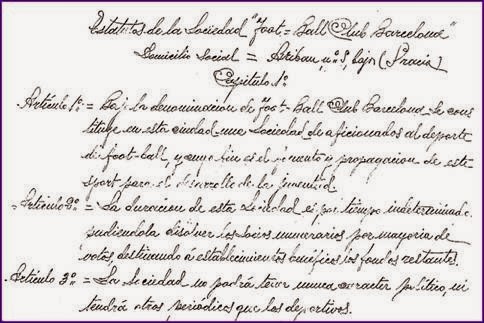 Estatutos de la Sociedad "Foot=Ball Club Barcelona"
Domicilio Social = Aribau, nº 8, bajos (Gracia)
Capitulo 1º
Artículo 1º: = Bajo la denominacion de Foot-Ball Club Barcelona se cons
tituye en esta ciudad una Sociedad de aficionados al deporte
del foot-ball, y cuyo fin es el fomento y propagacion de este
sport para el desarrollo de la juventud.
Artículo 2º = La duracion de esta Sociedad es por tiempo indeterminado
pudiendola disolver los socios numerarios por mayoria de
votos destinando á establecimientos benéficos los fondos restantes.
Artículo 3º = La Sociedad no podrá tener nunca caracter político, ni
tendrá otros periódicos que los deportivos.